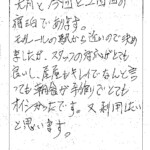 先月と今回と二回目の
宿泊であります。
モノレールの駅から近いので決め
ましたが、スタッフの対応がとても
良いし、部屋もキレイでなんと言
っても朝食が手作りでとても
オイシかったです。又利用したい
と思います。